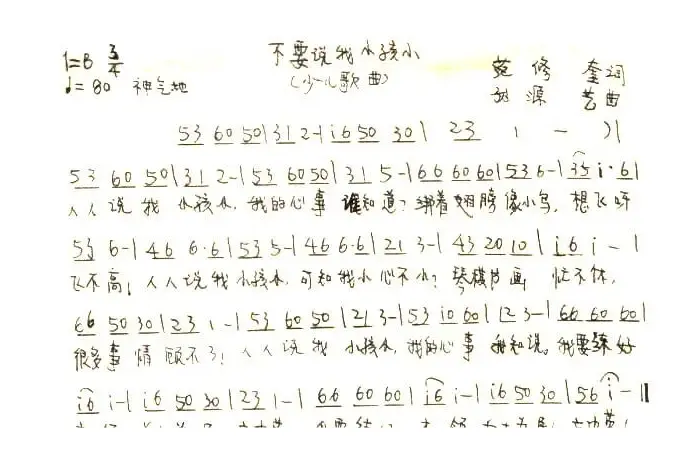 不要说我小孩小
1=B 3/4
(少儿歌曲)
范修奎词
♩=80 神气地
源艺曲
53 60 50|31 2-|i6 50 30|23 1 - )|
53 60 50|31 2-|53 60 50|31 5-|66 60 60|53 6-|35 i·6|
人人说我小孩小,我的心事谁知道?绑着翅膀像小鸟,想飞呀
53 6-|46 6·6|53 5-|46 6·6|21 3-|43 20 10|i6 i-|
飞不高!人人说我小孩小,可知我小心不小?琴棋书画忙不休,
66 50 30|23 1-|53 60 50|21 3-|53 i0 60|23 -|66 60 60|
很多事情顾不了!人人说我小孩小,我的心事我知说。我要练好
i6 i-|i6 50 30|23 1-|66 60 60|i6 i-|i6 50 30|56 i-‖